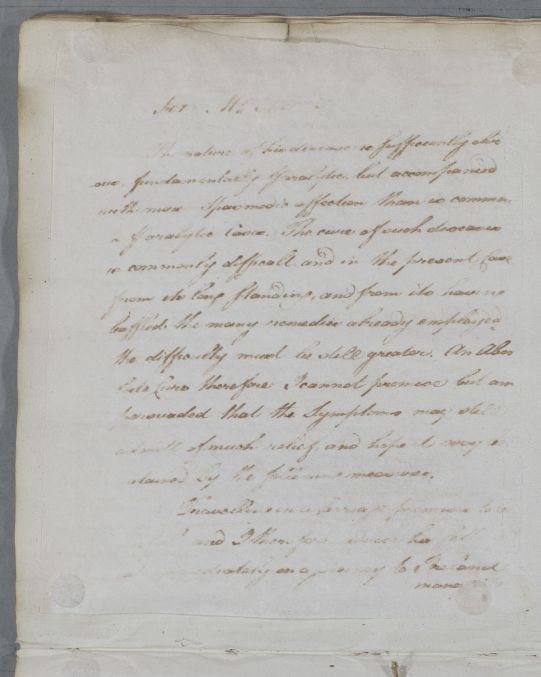 For Mr
The nature of his disease is sufficiently obvi
ous, fundamentally Paralytic, but accompanied
with more Spasmodic affection than is common
in Paralytic cases. The cure of such diseases
is commonly difficult and in the present Case
from its long standing, and from its having
baffled the many remedies already employed
the difficulty must be still greater. An Abso
lute Cure therefore I cannot promise but am
persuaded that the Symptoms may still
admitt of much relief, and hope it may be
obtained by the following measures.
Travelling in a Carriage promises to
and I therefore advise
immediately on a journey to Ireland